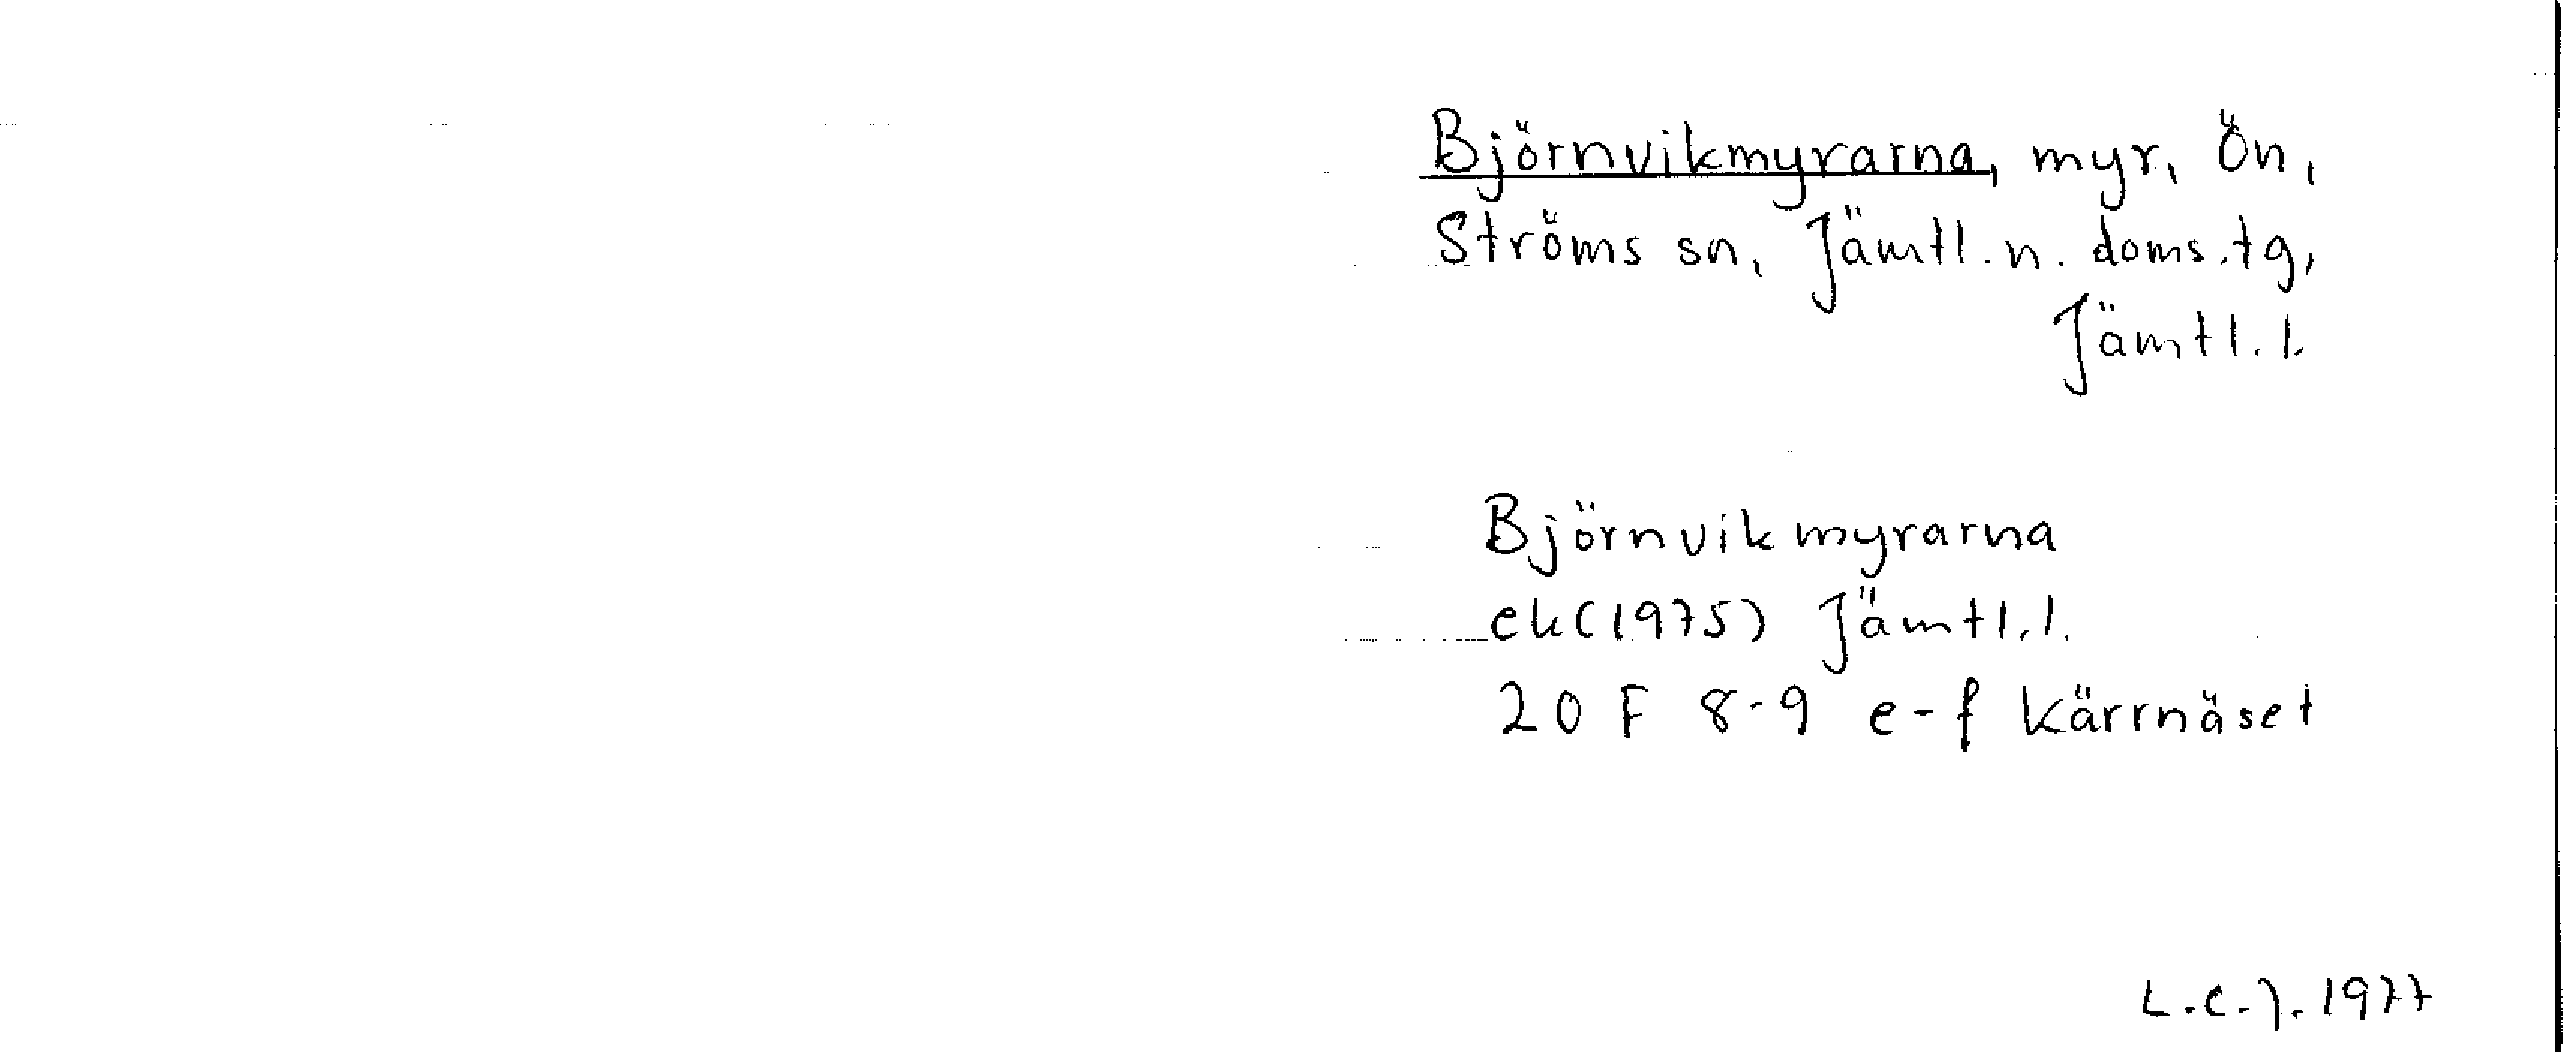 Björnvikmyrarna, myr, Ön,
Ströms sn, Jämtl. n. doms.tg,
Jämtl. l.
Björnvikmyrarna
ek (1975) Jämtl. l.
20 F 8-9 e-f Kärrnäset
L.C.J. 1977